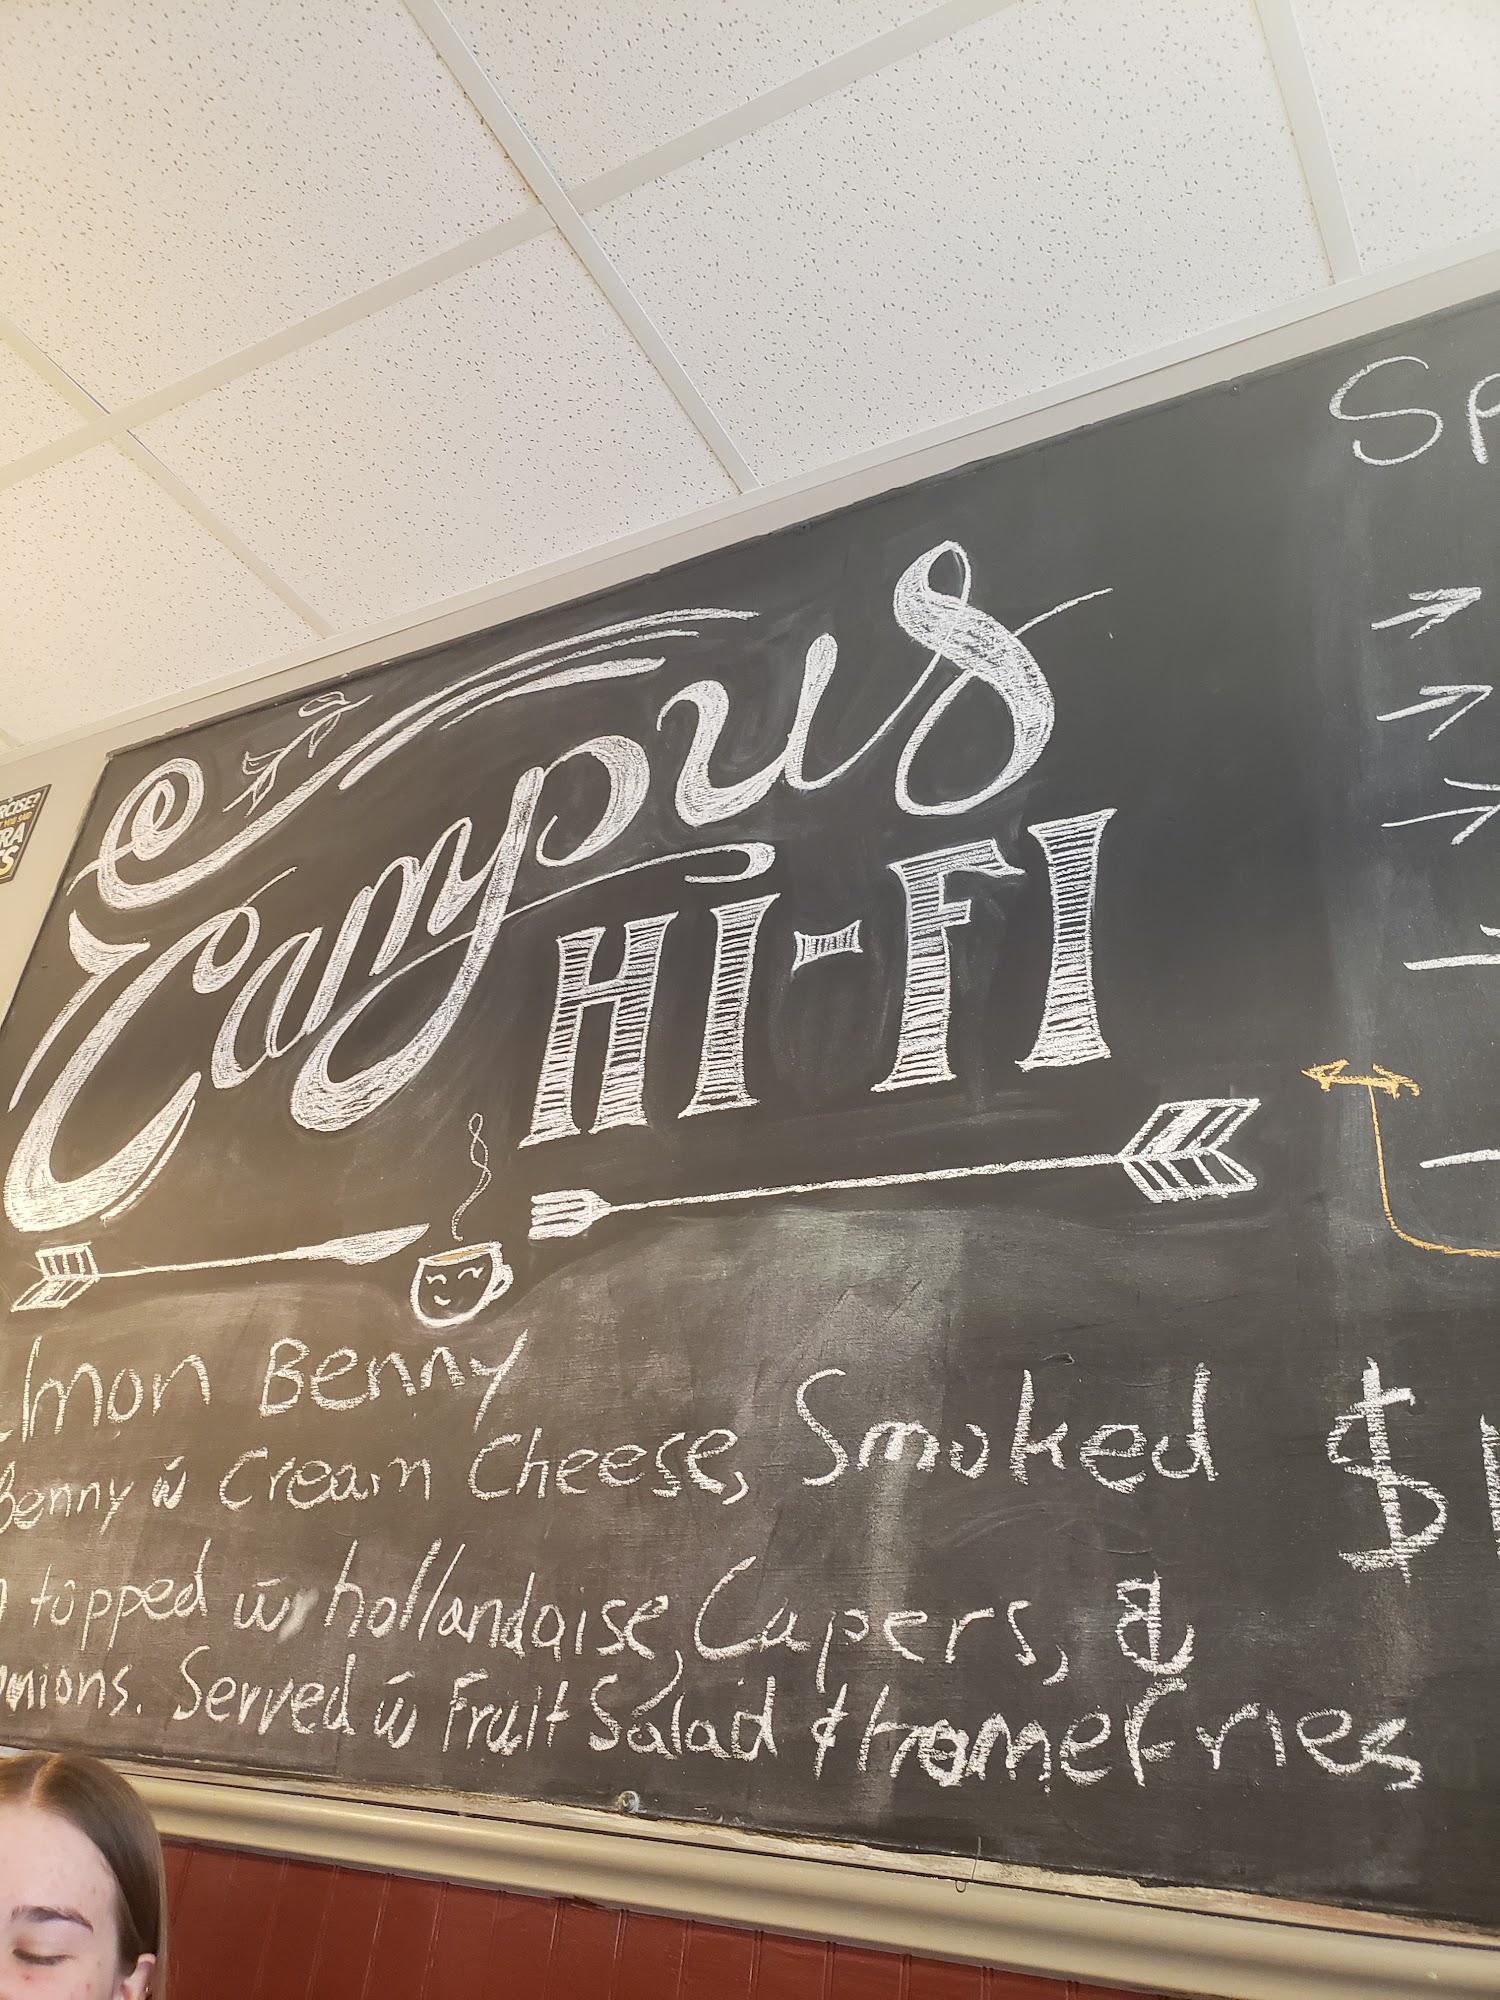 @ Campus
HI-FI
lmon Benny
Benny w̄ Cream Cheese, Smoked
topped w̄ hollandaise, Capers, &
onions. Served w̄ Fruit Salad & HomeFries
$1
Sp
RCISE?